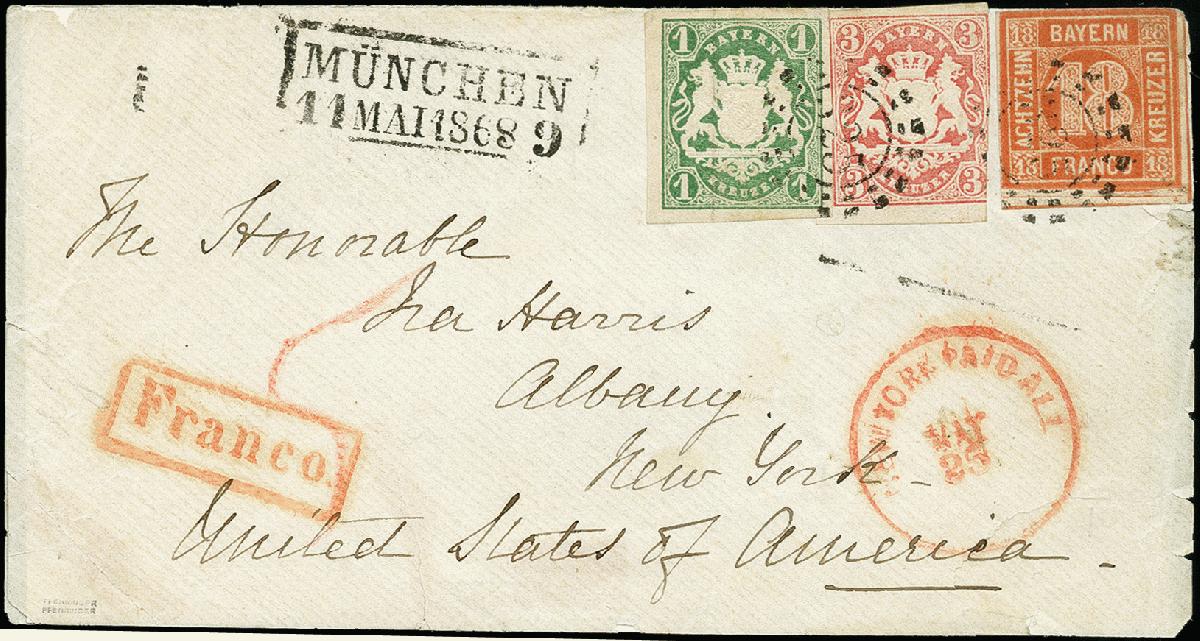 MÜNCHEN
11 MAI 1868 9
1 BAYERN 1
1 KREUZER 1
3 BAYERN 3
3 KREUZER 3
18 BAYERN 18
ACHTZEHN 18 KREUZER
18 FRANCO 18
The Honorable
Ira Harris
Albany.
New York
United States of America.
Franco.
NEW YORK PAID ALL
MAY
25
PFENNINGER
PFENNINGER